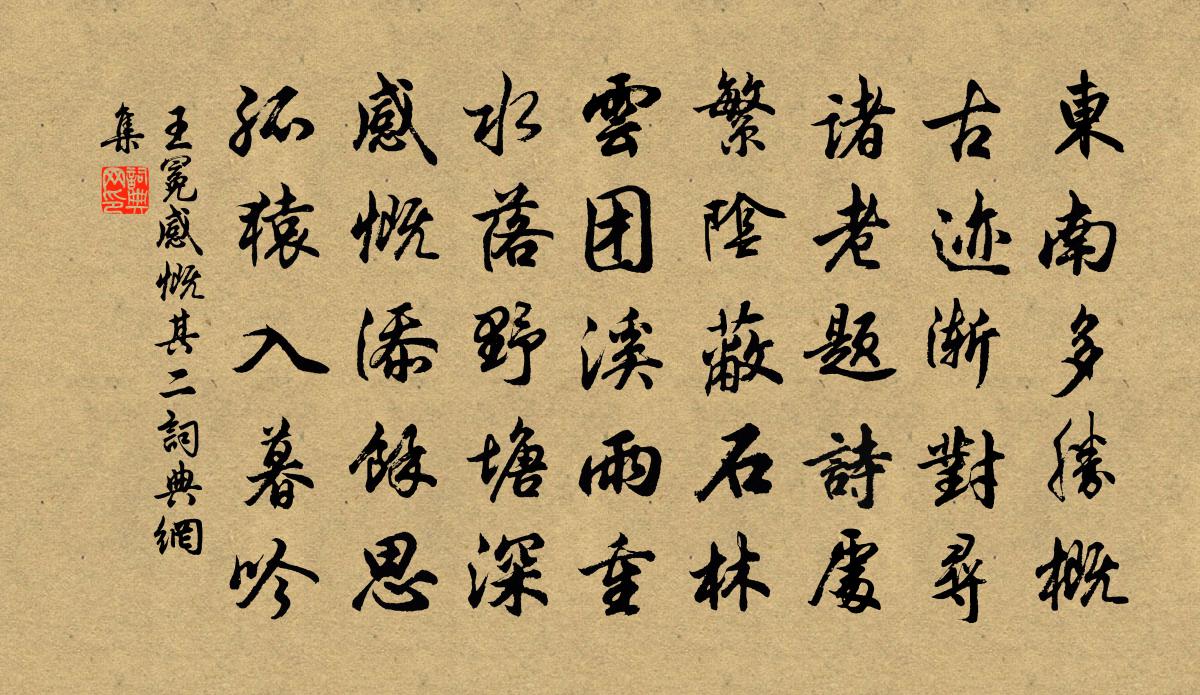 東南多勝概
古迹渐對尋
諸老題詩處
繁陰蔽石林
雲团溪雨重
水落野塘深
感慨添餘思
孤猿入暮吟
王冕感慨其二詞典網
集
詞典
网印